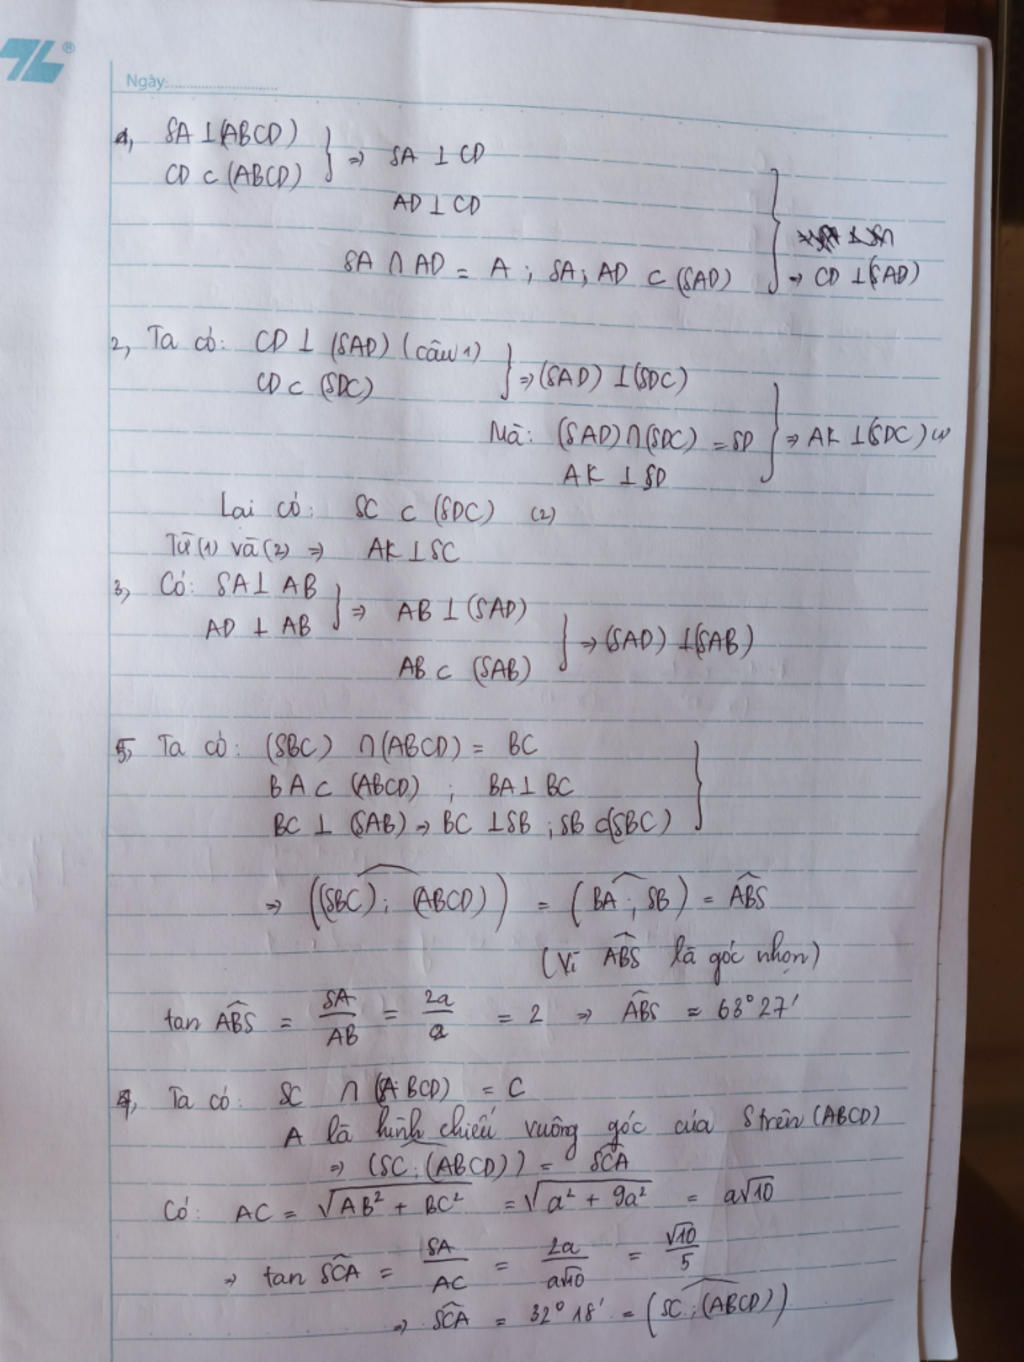 Ngày:
1, SA ⊥ (ABCD)
CD ⊂ (ABCD) } ⇒ SA ⊥ CD
AD ⊥ CD
SA ∩ AD = A ; SA; AD ⊂ (SAD) } ⇒ CD ⊥ (SAD)
2, Ta có: CD ⊥ (SAD) (câu 1)
CD ⊂ (SDC) } ⇒ (SAD) ⊥ (SDC)
Mà: (SAD) ∩ (SDC) = SD
AK ⊥ SD } ⇒ AK ⊥ (SDC) (1)
Lại có: SC ⊂ (SDC) (2)
Từ (1) và (2) ⇒ AK ⊥ SC
3, Có: SA ⊥ AB
AD ⊥ AB } ⇒ AB ⊥ (SAD)
AB ⊂ (SAB) } ⇒ (SAD) ⊥ (SAB)
5, Ta có: (SBC) ∩ (ABCD) = BC
BA ⊂ (ABCD) ; BA ⊥ BC
BC ⊥ (SAB) ⇒ BC ⊥ SB ; SB ⊂ (SBC) }
⇒ ((SBC); (ABCD)) = (BA; SB) = ABS
(Vì ABS là góc nhọn)
tan ABS = SA/AB = 2a/a = 2 ⇒ ABS ≈ 63°27'
4, Ta có: SC ∩ (ABCD) = C
A là hình chiếu vuông góc của S trên (ABCD)
⇒ (SC; (ABCD)) = SCA
Có: AC = √(AB² + BC²) = √(a² + 9a²) = a√10
⇒ tan SCA = SA/AC = 2a/a√10 = √10/5
⇒ SCA = 32°18' = (SC; (ABCD))